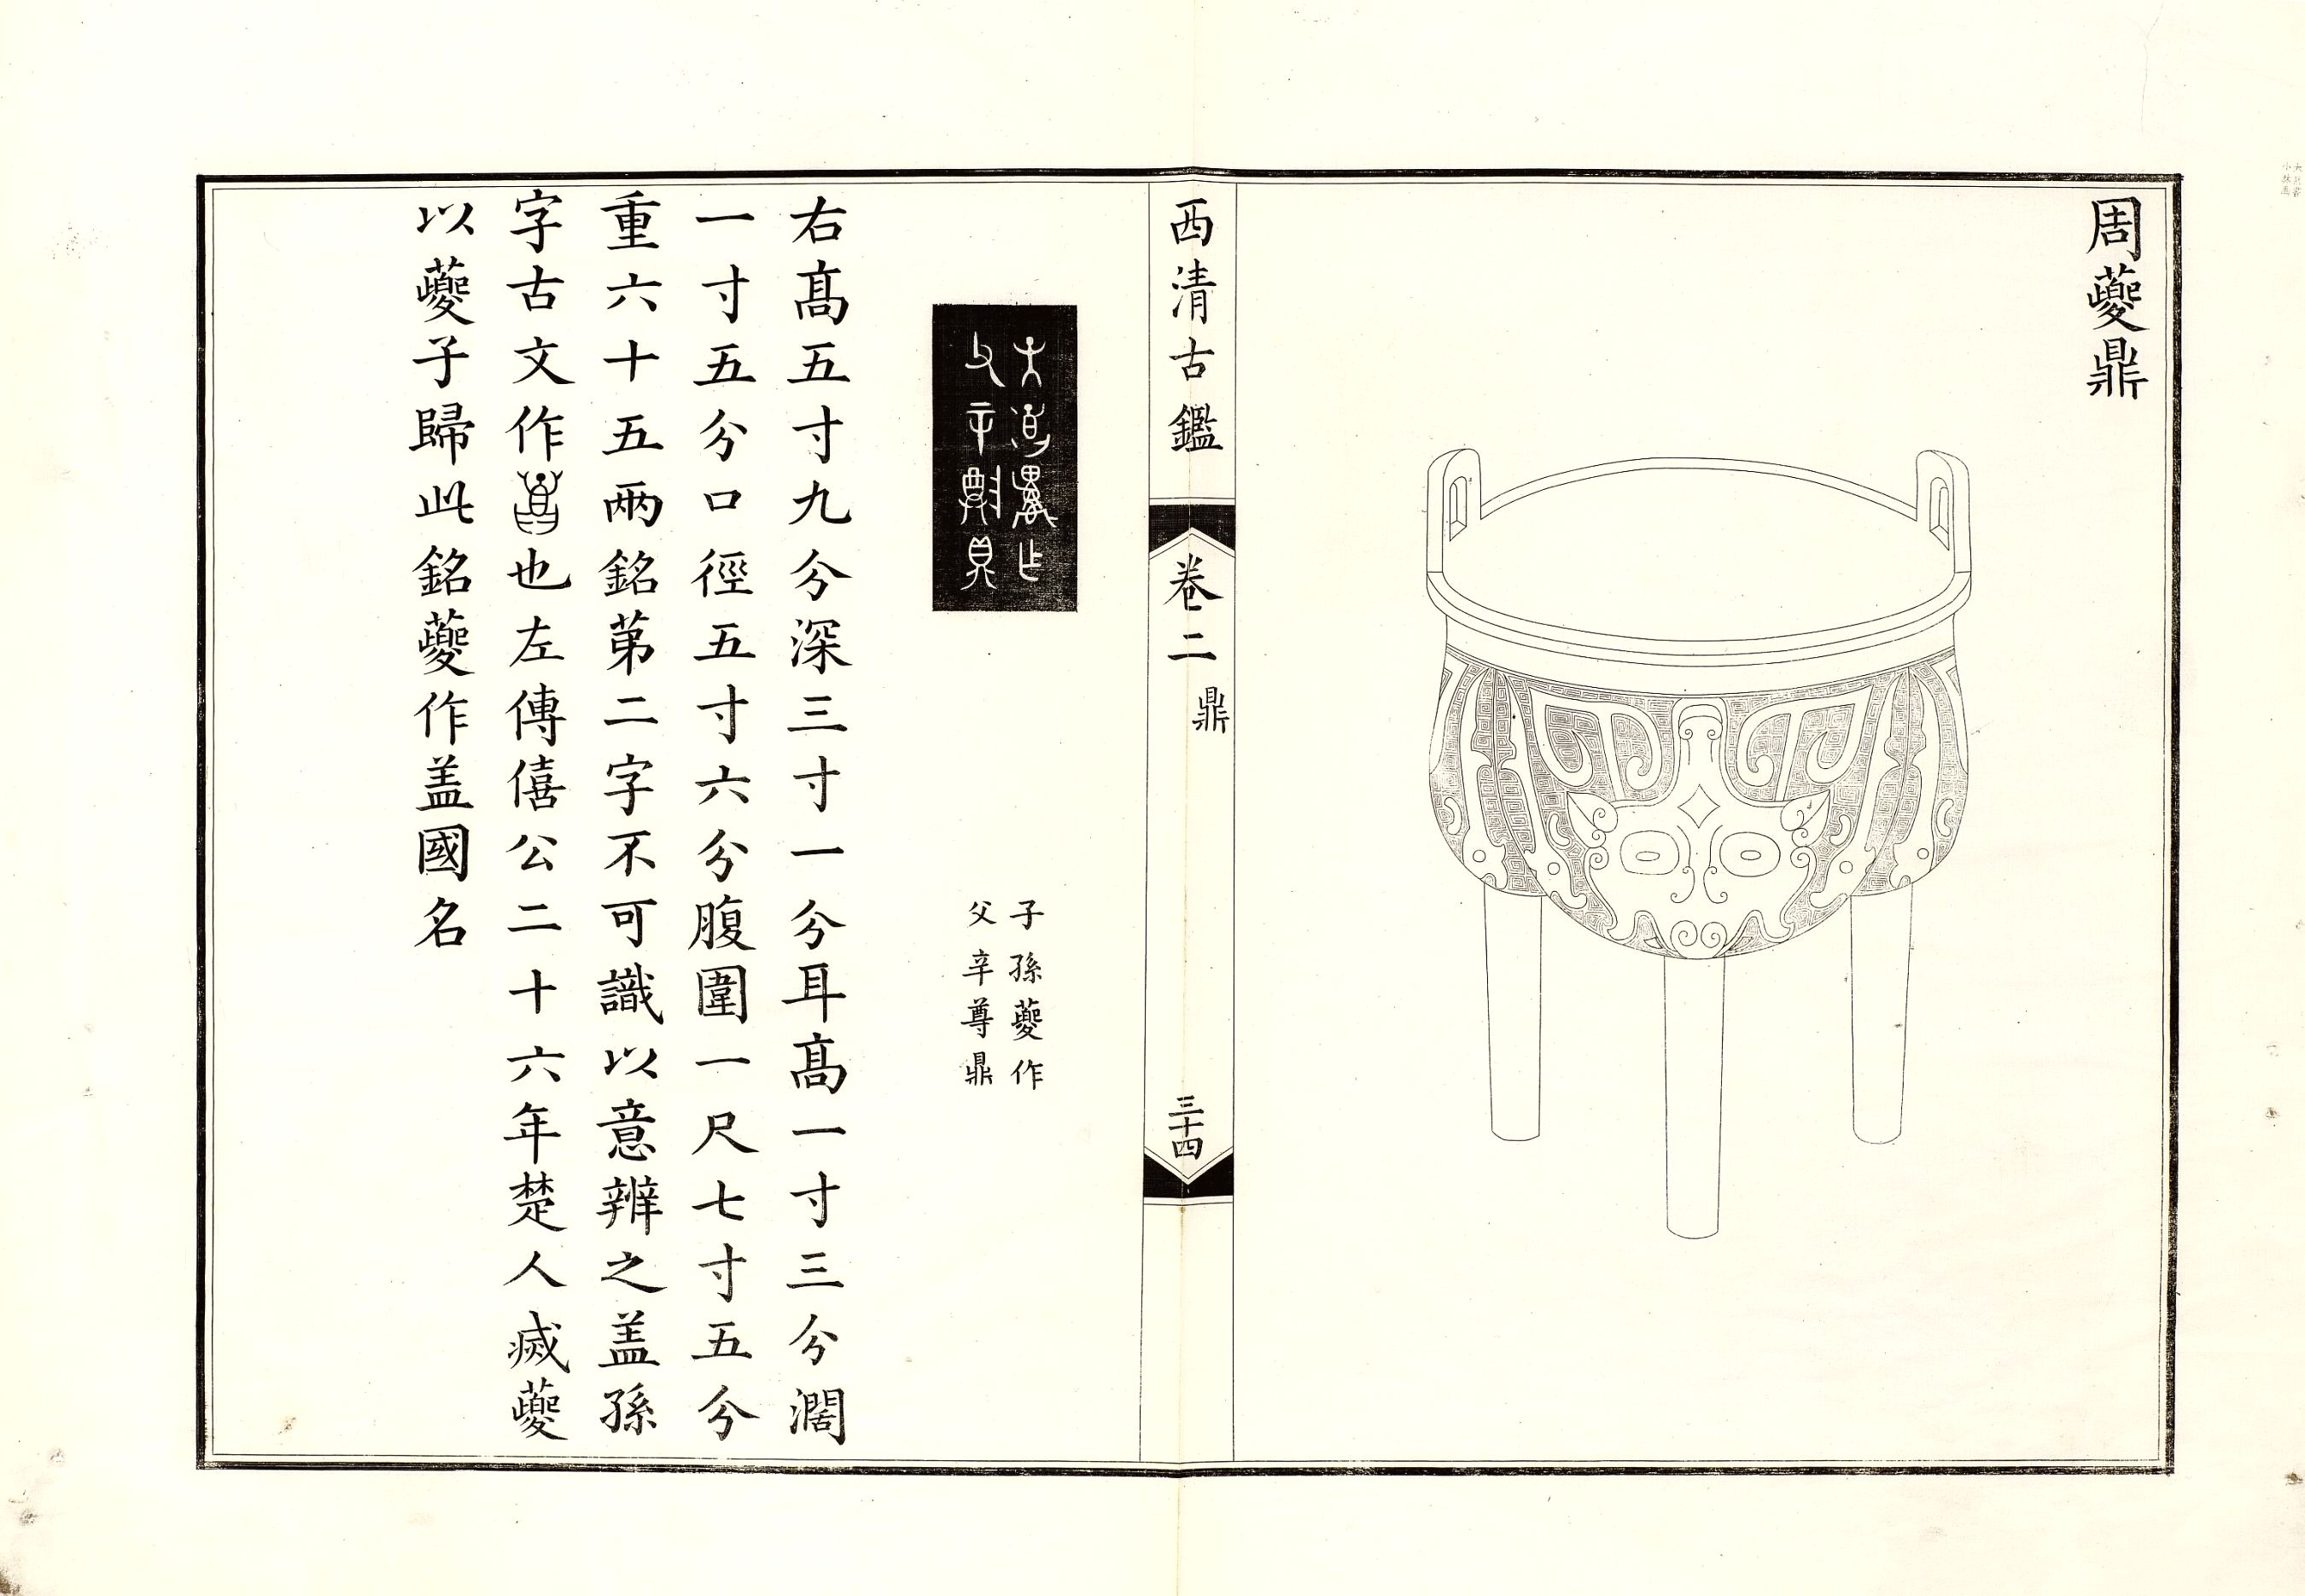 周虁鼎
西清古鑑
卷二
鼎
三十四
子孫虁作
父辛尊鼎
右髙五寸九分深三寸一分耳髙一寸三分濶
一寸五分口徑五寸六分腹圍一尺七寸五分
重六十五兩銘第二字不可識以意辨之盖孫
字古文作也左傳僖公二十六年楚人滅虁
以虁子歸此銘虁作盖國名